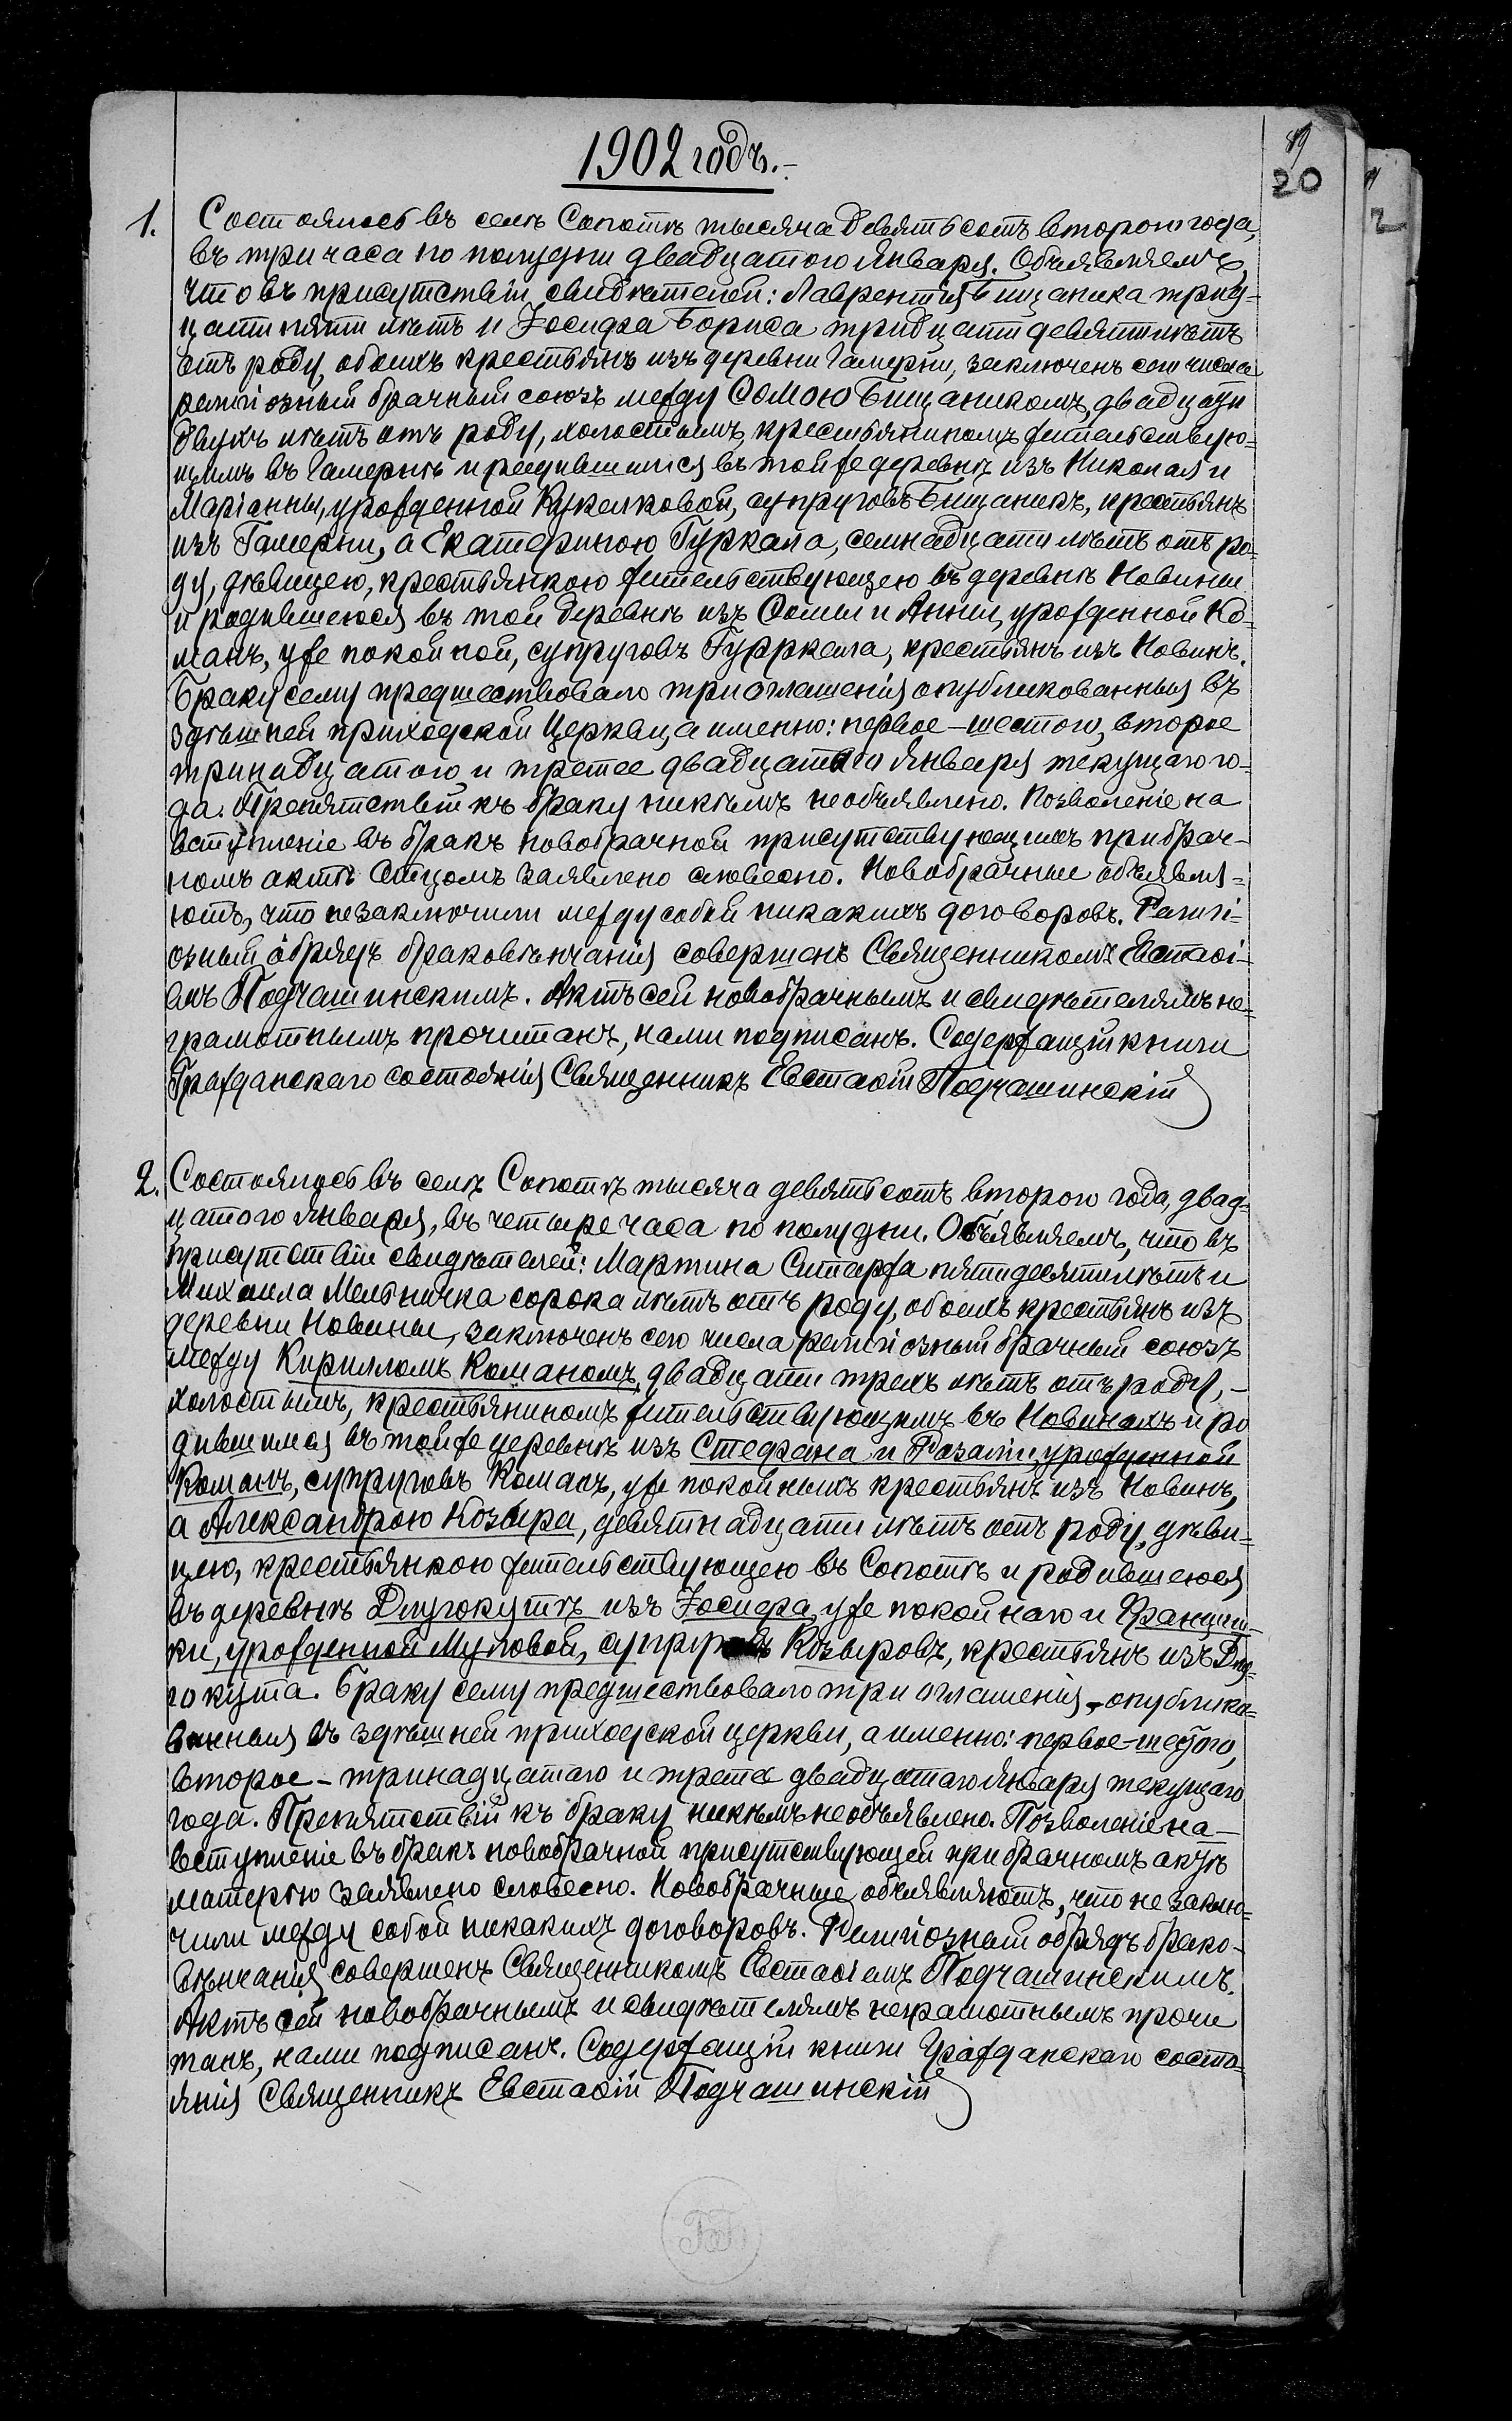 1902 годъ.-
19
20
2
1. Состоялось въ селѣ Сопотѣ тысяча девятьсотъ второго года,
въ три часа по полудни двадцатого Января. Объявляемъ,
что въ присутствіи свидѣтелей: Лаврентія Бищаника трид-
цати пяти лѣтъ и Іосифа Бориса тридцати девяти лѣтъ
отъ роду, обоихъ крестьянъ изъ деревни Гамерни, заключенъ сего числа
религіозный брачный союзъ между Ѳомою Бищаникомъ, двадцати
двухъ лѣтъ отъ роду, холостымъ, крестьяниномъ жительствую-
щимъ въ Гамернѣ и родившимся въ той же деревнѣ изъ Николая и
Маріанны, урожденной Кукелковой, супруговъ Бищаникъ, крестьянъ
изъ Гамерни, а Екатериною Гуркала, семнадцати лѣтъ отъ ро-
ду, дѣвицею, крестьянкою жительствующею въ деревнѣ Новины
и родившеюся въ той деревнѣ изъ Ѳомы и Анны, урожденной Ко-
манъ, уже покойной, супруговъ Гурркала, крестьянъ изъ Новинъ.
Браку сему предшествовало три оглашенія опубликованныя въ
здѣшней приходской Церкви, а именно: первое - шестого, второе
тринадцатого и третее двадцатого Января текущаго го-
да. Препятствій къ браку никѣмъ не объявлено. Позволеніе на
вступленіе въ бракъ новобрачной присутствующимъ при брач-
номъ актѣ Отцомъ заявлено словесно. Новобрачные объявля-
ютъ, что не заключили между собой никакихъ договоровъ. Религі-
озный обрядъ браковѣнчанія совершенъ Священникомъ Евстаѳі-
емъ Подчашинскимъ. Актъ сей новобрачнымъ и свидѣтелямъ не-
грамотнымъ прочитанъ, нами подписанъ. Содержащій книги
Гражданскаго состоянія Священникъ Евстаѳій Подчашинскій
2. Состоялось въ селѣ Сопотѣ тысяча девятьсотъ второго года, двад-
цатого Января, въ четыре часа по полудни. Объявляемъ, что въ
присутствіи свидѣтелей: Мартина Ситаржа пятидесяти лѣтъ и
Михаила Мельничка сорока лѣтъ отъ роду, обоихъ крестьянъ изъ
деревни Новины, заключенъ сего числа религіозный брачный союзъ
между Кирилломъ Команомъ, двадцати трехъ лѣтъ отъ роду,-
холостымъ, крестьяниномъ жительствующимъ въ Новинахъ и ро
дившимся въ той же деревнѣ изъ Стефана и Розаліи, урожденной
Команъ, супруговъ Команъ, уже покойныхъ крестьянъ изъ Новинъ,
а Александрою Козыра, девятнадцати лѣтъ отъ роду, дѣви-
цею, крестьянкою жительствующею въ Сопотѣ и родившеюся
въ деревнѣ Длугокутѣ изъ Іосифа, уже покойнаго и Францыш-
ки, урожденной Муловой, супруговъ Козыровъ, крестьянъ изъ Длу-
гокута. Браку сему предшествовало три оглашенія, опублико-
ванныя въ здѣшней приходской церкви, а именно: первое-шестого,
второе - тринадцатаго и третее двадцатаго Января текущаго
года. Препятствій къ браку никѣмъ не объявлено. Позволеніе на-
вступленіе въ бракъ новобрачной присутствующей при брачномъ актѣ
матерью заявлено словесно. Новобрачные объявляютъ, что не заклю-
чили между собой никакихъ договоровъ. Религіозный обрядъ брако-
вѣнчанія совершенъ Священникомъ Евстаѳіемъ Подчашинскимъ.
Актъ сей новобрачнымъ и свидѣтелямъ неграмотнымъ прочи
танъ, нами подписанъ. Содержащій книги Гражданскаго состо-
янія Священникъ Евстаѳій Подчашинскій